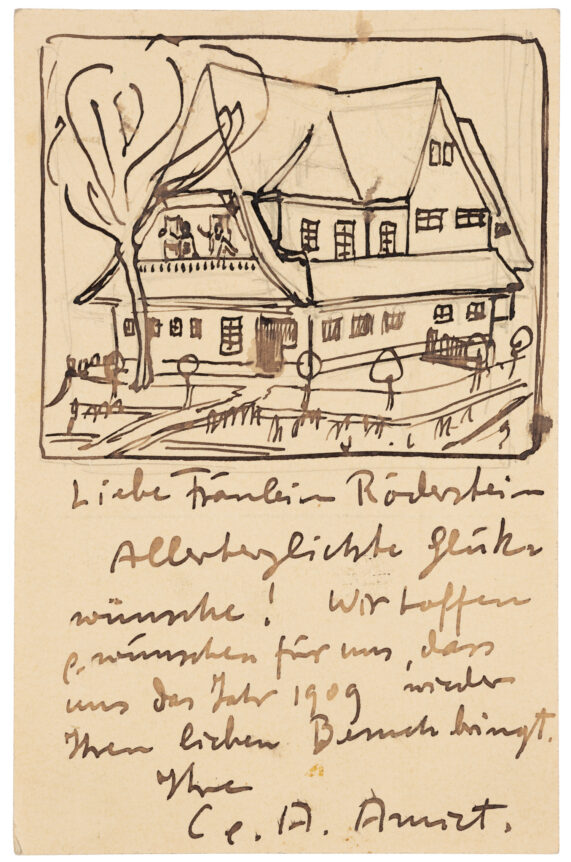 Liebe Fräulein Röderstein
Allerherzlichste Glük-
wünsche! Wir hoffen
& wünschen für uns, dass
uns das Jahr 1909 wieder
Ihren lieben Besuch bringt.
Ihre
C & A. Amiet.